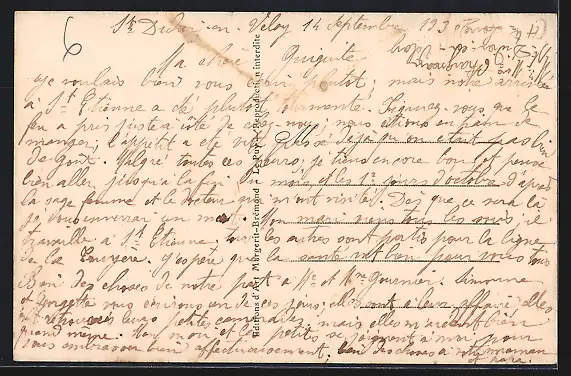 St Didier en Velay 14 Septembre 193
Ma chère Guiguite
Je voulais bien vous écrire plutôt ; mais notre arrivée
à St Etienne a été plutôt tourmenté. Figurez-vous que le
feu a pris juste à côté de chez nous ; nous étions en train de
manger ; l'appétit a été vite passé déjà qu'on était pas bien
de goût. Malgré toutes ces je tiens encore bon et pense
bien aller jusqu'à la fin du mois et les 1er jours d'octobre d'après
la sage femme et le docteur qui m'ont visité. Dès que ce sera là
je vous enverrai un mot. Mon mari viens tous les soirs, il
travaille à St Etienne, tous les autres sont partis pour la ligne
de la Bruyère. J'espère que la santé est bon pour vous tous
Bien des choses de notre part à Mr et Mme Simone
et Georgette vous envoi un de ces jours ; elles sont à leur affaire elles
ont retrouvé leurs petites camarades, mais elles m'aident bien
quand même. Mon mari et les petites se joignent à moi pour
vous embrasser bien affectueusement. bien des choses à votre maman
et papa.
Editions d'Art Margerit-Brémond - Le Puy - Reproduction interdite